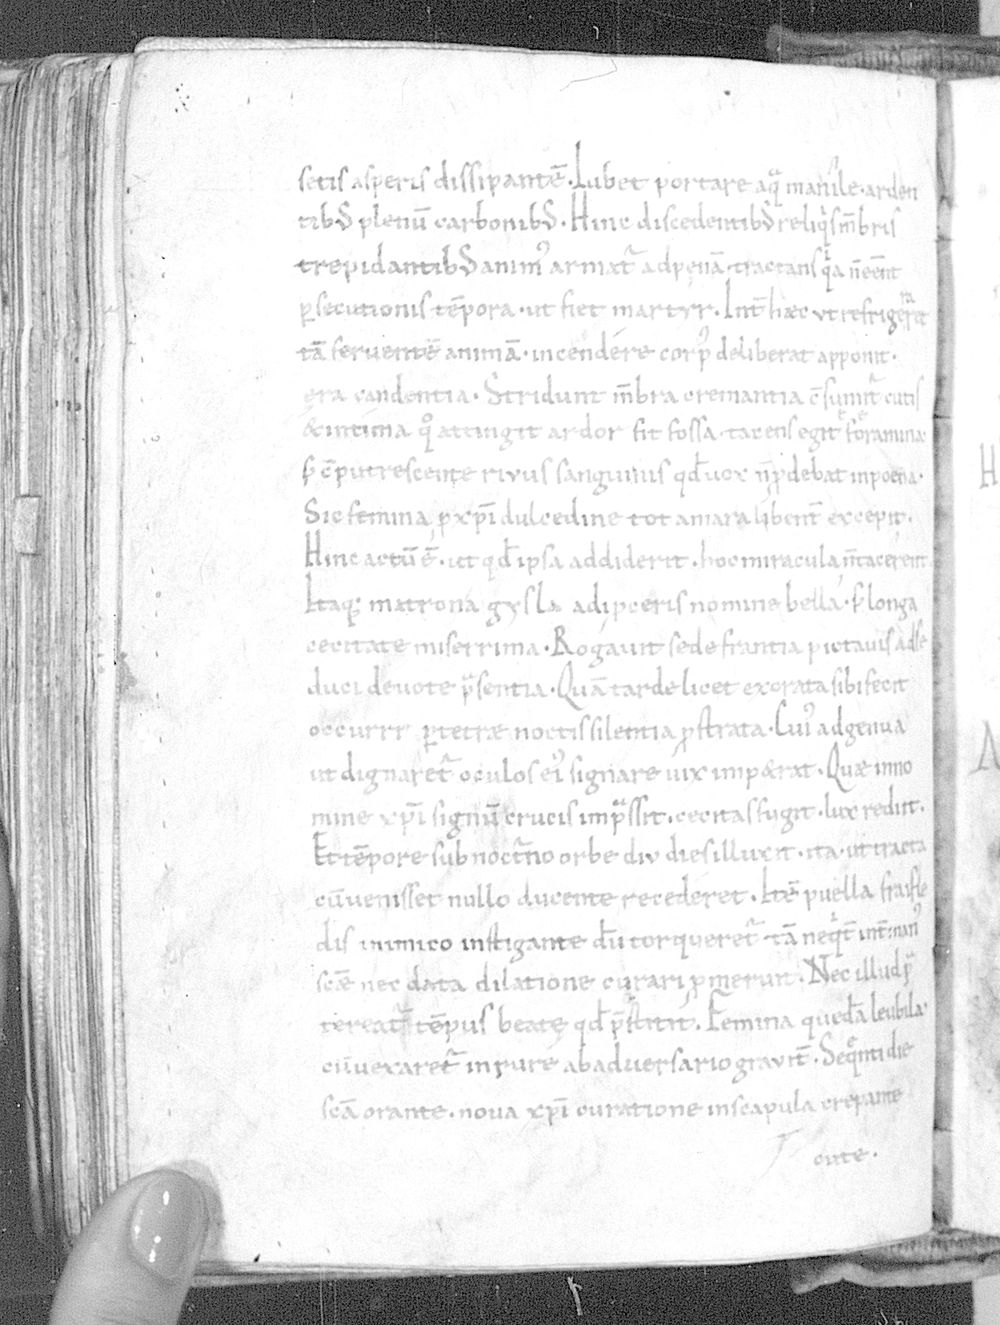 setis asperis dissipantē. Lubet portare aq̄ manile. arden
tibꝰ plenū carbonibꝰ. Hinc discedentibꝰ reliqⁱs m̄bris
trepidantibꝰ animꝰ armat̄ ad penā. tractans qⁱa n̄ eēnt
ꝑsecutionis tēpora. ut fiet martyr. Int̄ hæc ut refrigeraret
tā feruentē animā. incendere corpꝰ deliberat apponit.
era candentia. Stridunt m̄bra cremantia c̄sumit̄ cutis
&intima qͦ attingit ardor fit fossa. tacens tegit foramina
s; c̄putrescente rivus sanguinis qđ uox n̄ ꝓdebat in poena.
Sic femina ꝓ xp̄i dulcedine tot amara libent̄ excepit.
Hinc actū ē. ut qđ ipsa addiderit. hoc miracula n̄ tacerent
Itaq; matrona gysla adi pceris nomine bella. ꝑ longa
cecitate miserrima. Rogauit se de frantia pictauis ad se
duci deuote p̄sentia. Quā tarde licet exorata sibi fecit
occurrr ꝑ tetræ noctis silentia ꝓstrata. Cuiꝰ ad genua
ut dignaret̄ oculos eiꝰ signare uix imp&rat. Quæ in no
mine xp̄i signū crucis imp̄ssit. cecitas fugit. lux rediit.
Et tēpore sub noct̄no orbe div dies illuxit. ita. ut tracta
cū uenisset nullo ducente recederet. Itē puella fraifle
dis inimico instigante dū torqueret̄ tā neqⁱt̄ int̄ manꝰ
scæ nec data dilatione curari ꝓmeruit. Nec illud p̄
tereat̄ tēpus beate qđ p̄stitit. Femina quedā leubila.
cū uexaret̄ in rure ab aduersario grauit̄. Seq̄nti die
scā orante. noua xp̄i curatione in scapula crepante
cute.